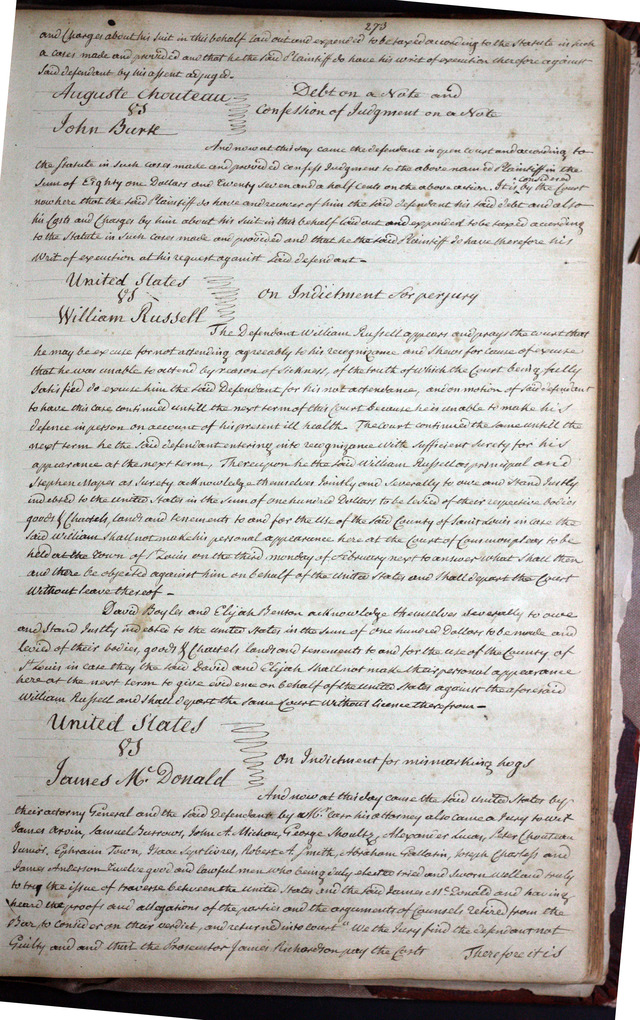 273
and Charges about his suit in this behalf laid out and expended to be taxed according to the Statute in such
a cases made and provided and that he the said Plaintiff do have his writ of execution therefore against
said defendant by his assent adjuged.
Auguste Chouteau Debt on a Note and
VS Confession of Judgment on a Note
John Burk
And now at this day came the defendant in open court and according to
the Statute in such cases made and provided confess Judgment to the above named Plaintiff in the
Sum of Eighty one Dollars and Twenty Seven and a half Cents on the above action. It is considered by the Court
now here that the said Plaintiff do have and recover of him the said defendant his said debt and also
his Costs and Charges by him about his suit in this behalf laid out and expended to be taxed according
to the Statute in Such cases made and provided and that he the said Plaintiff do have therefore his
Writ of execution at his request against said defendant-
United States
VS On Indictment for perjury
William Russell
The Defendant William Russell appears and prays the court that
he may be excuse for not attending agreeably to his recognizance and Shews for cause of excuse
that he was unable to attend by reason of Sickness, of the truth of which the Court being fully
Satisfied do excuse him the said Defendant for his not attendance, and on motion of said defendant
to have this case continued untill the next term of this Court because he is unable to make his
defence in person on account of his present ill health. The court continued the same untill the
next term he the said defendant entering into recognizance with sufficient surety for his
appearance at the next term, Thereupon he the said William Russell as principal and
Stephen Mapes as Surety acknowledge themselves Jointly and Severally to owe and Stand Justly
indebted to the United States in the Sum of one hundred Dollars to be levied of their respective bodies
goods & Chattels, lands and tenements to and for the Use of the said County of Saint Louis in case the
said William Shall not make his personal appearance here at the Court of Common pleas to be
held at the Town of St Louis on the third monday of February next to answer what Shall then
and there be objected against him on behalf of the United States and Shall depart the Court
Without leave thereof-
David Boyles and Elijah Benton acknowledge themselves severally to owe
and Stand Justly indebted to the United States in the Sum of one hundred Dollars to be made and
levied of their bodies, goods & Chattels lands and tenements to and for the use of the County of
St Louis in case they the said David and Elijah Shall not make their personal appearance
here at the next term to give evidence on behalf of the United States against the aforesaid
William Russell and Shall depart the same Court without licence therefrom-
United States
VS On Indictment for mismarking hogs
James Mc Donald
And now at this day came the said United States by
their attorny General and the said Defendant by Mr. Carr his attorney also came a Jury to wit
James Arvin, Samuel Burrows, John A. Michau, George Shoultz, Alexander Lucas, Peter Chouteau
Junior, Ephraim Town, Isaac Robert A. Smith, Abraham Gallatin, Joseph Charless and
James Anderson Twelve good and lawful men who being duly elected tried and Sworn Well and truly
to try the issue of traverse between the United States and the said James Mc Donald and having
heard the proofs and allegations of the parties and the arguments of Counsels retired from the
Bar, to consider on their verdict, and returned into court "We the Jury find the defendant not
Guilty and and that the Prosecutor James Richardson pay the Costs Therefore it is